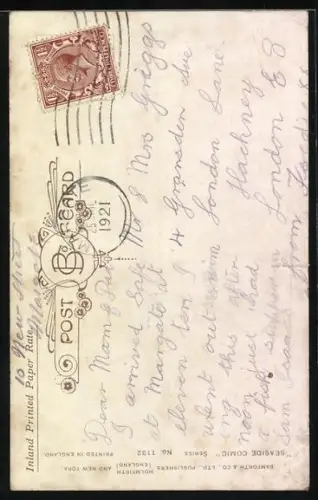 Inland Printed Paper Rate
10 New Street
Margate
POST CARD
B
1921
Dear Mam & Dad
I arrived safe
at Margate at
eleven ten I
went out swim
ing this after
noon just had
fish supper
Mr & Mrs Griggs
4 Gransden Ave
London Lane
Hackney
London E 8
from
"SEASIDE COMIC" SERIES No. 1132
BAMFORTH & CO. LTD., PUBLISHERS
HOLMFIRTH (ENGLAND) AND NEW YORK
PRINTED IN ENGLAND